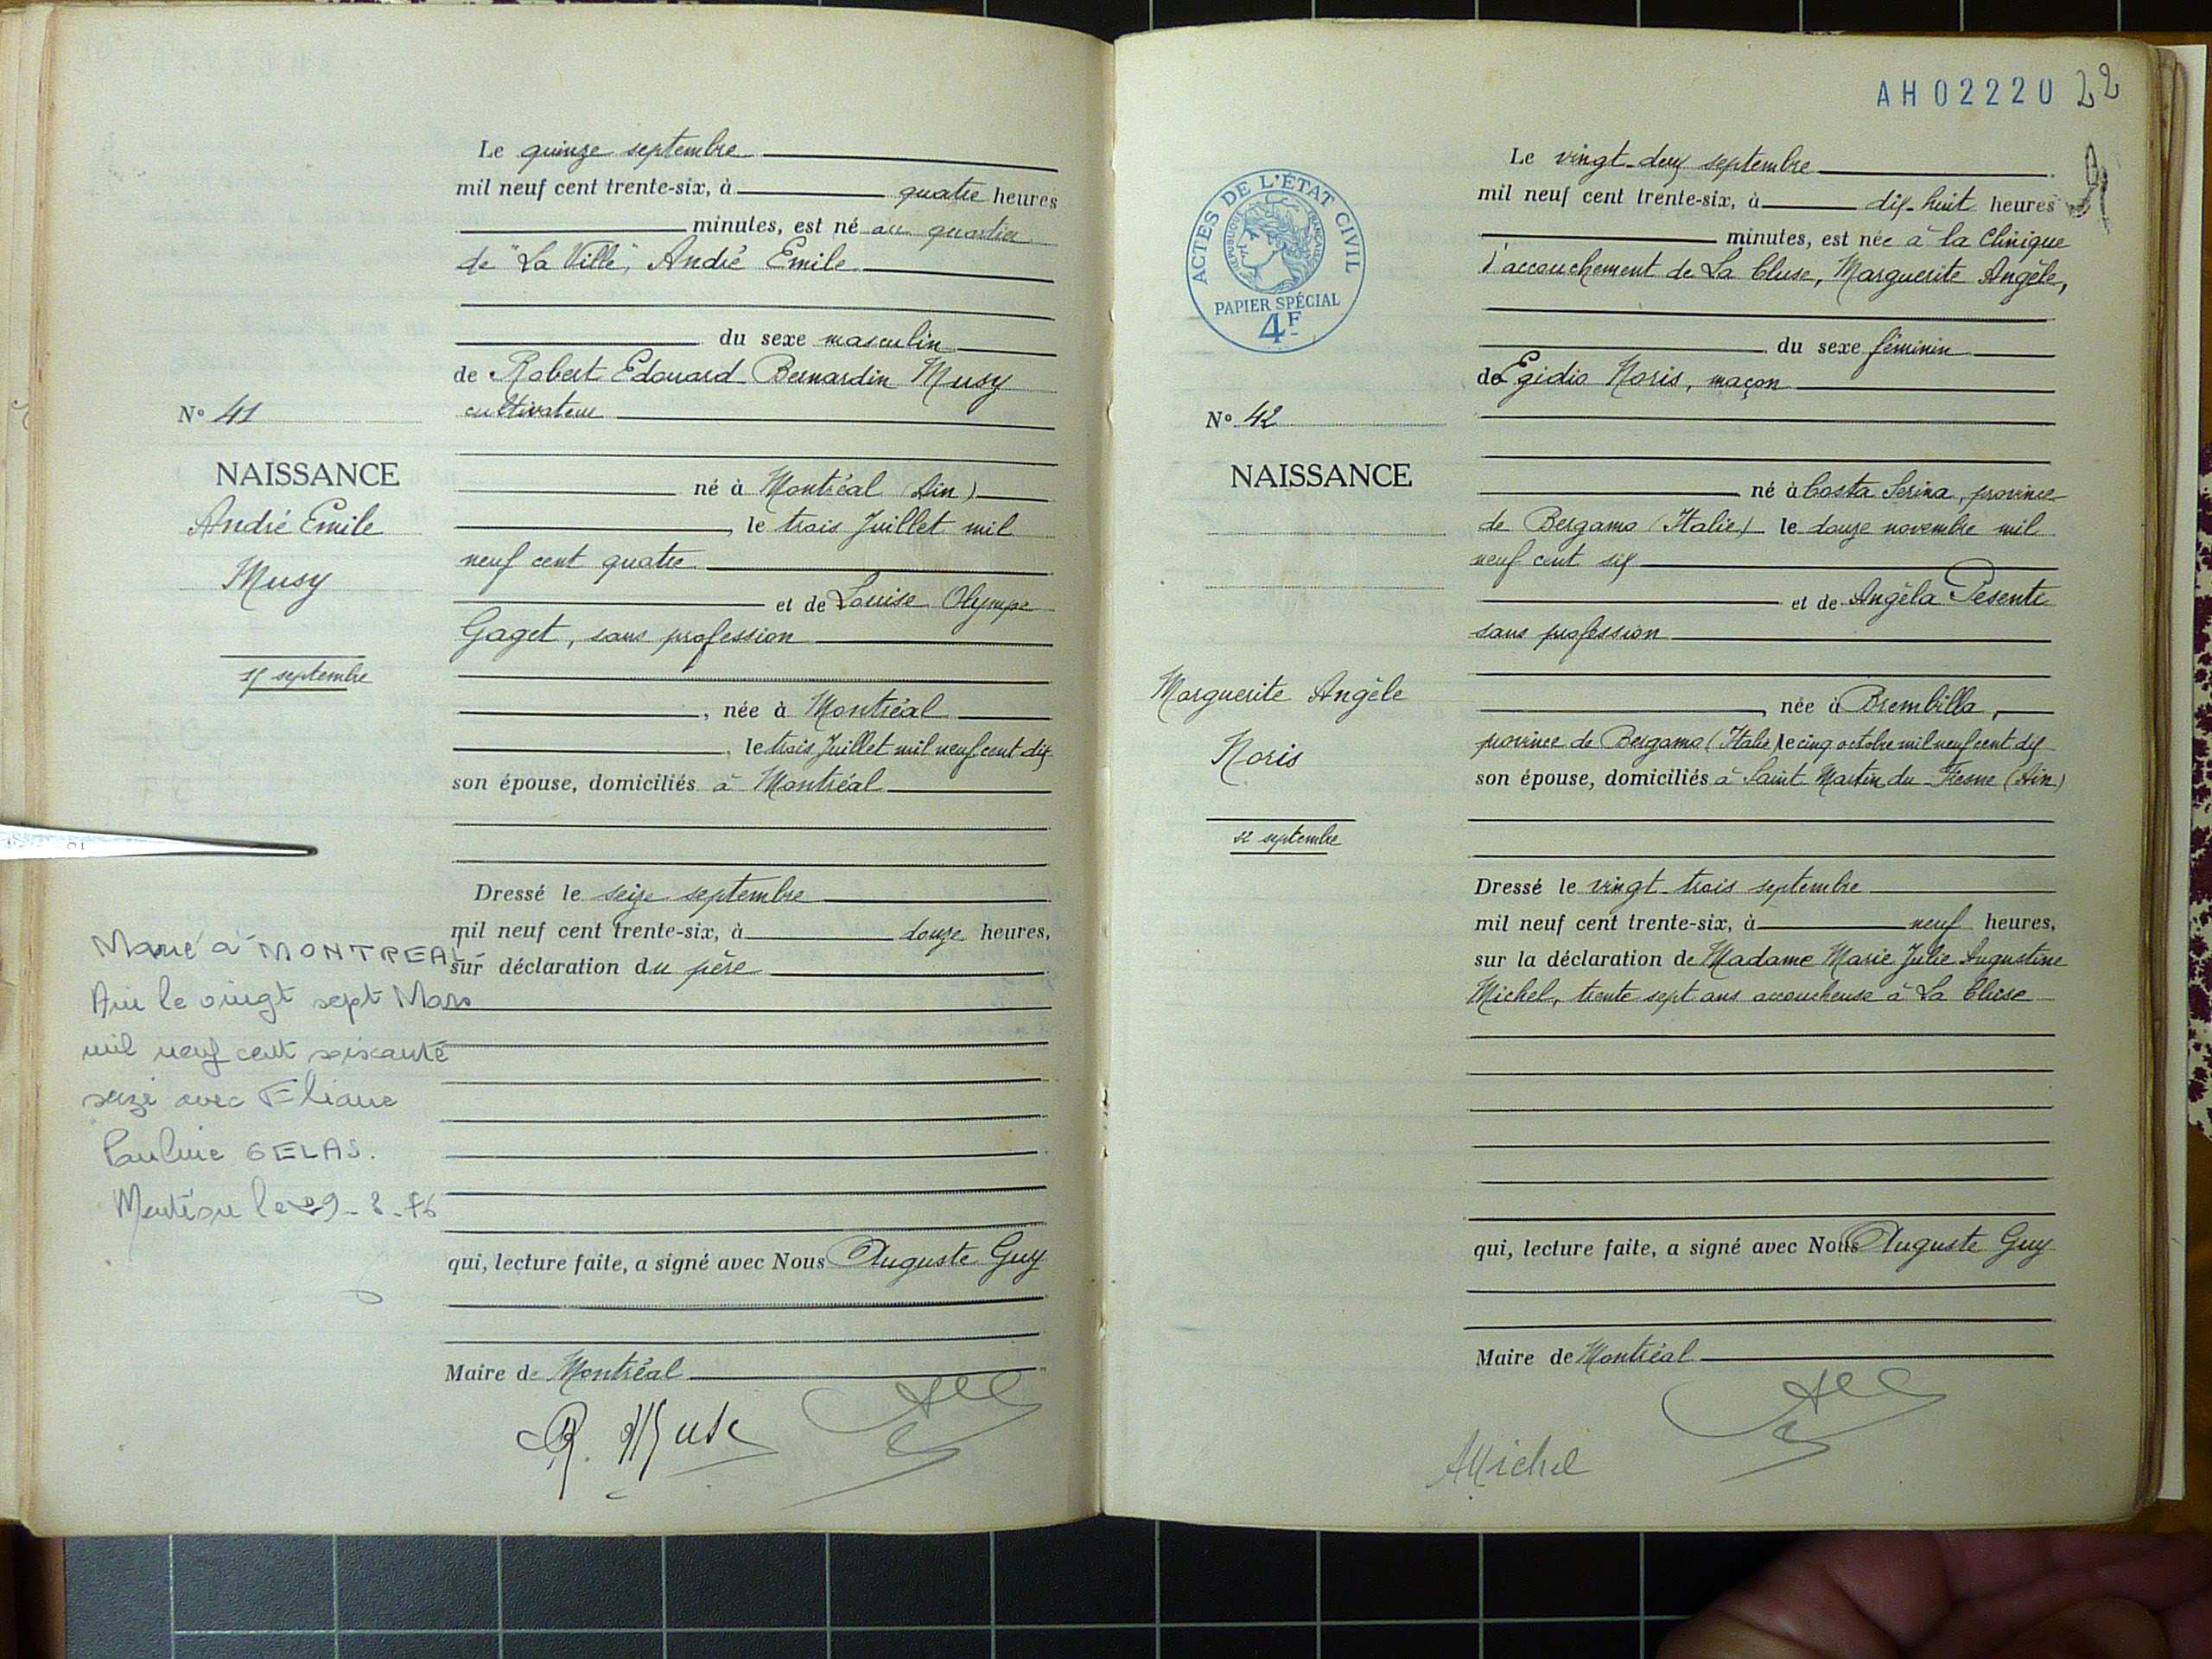 Le quinze septembre
mil neuf cent trente-six, à quatre heures
minutes, est né au quartier
de "La Ville", André Emile
du sexe masculin
de Robert Edouard Bernardin Musy
cultivateur
N° 41
NAISSANCE
André Emile
Musy
15 septembre
né à Montréal (Ain)
, le trois Juillet mil
neuf cent quatre
et de Louise Olympe
Gaget, sans profession
, née à Montréal
, le trois Juillet mil neuf cent dix
son épouse, domiciliés à Montréal
Dressé le seize septembre
mil neuf cent trente-six, à douze heures,
sur déclaration du père
Marié à MONTREAL
Ain le vingt sept Mars
mil neuf cent soixante
seize avec Eliane
Pauline GELAS.
Mention le 29-3-76
qui, lecture faite, a signé avec Nous Auguste Guy
Maire de Montréal
R. Musy
AH02220 22
ACTES DE L'ÉTAT CIVIL
RÉPUBLIQUE FRANÇAISE
PAPIER SPÉCIAL
4F
Le vingt-deux septembre
mil neuf cent trente-six, à dix-huit heures
minutes, est née à la Clinique
d'accouchement de La Cluse, Marguerite Angèle,
du sexe féminin
de Egidio Noris, maçon
N° 42
NAISSANCE
Marguerite Angèle
Noris
22 septembre
né à Costa Serina, province
de Bergamo (Italie) le douze novembre mil
neuf cent six
et de Angéla Pesenti
sans profession
, née à Brembilla,
province de Bergamo (Italie) le cinq octobre mil neuf cent dix
son épouse, domiciliés à Saint Martin du Fresne (Ain)
Dressé le vingt-trois septembre
mil neuf cent trente-six, à neuf heures,
sur la déclaration de Madame Marie Julie Augustine
Michel, trente sept ans accoucheuse à La Cluse
qui, lecture faite, a signé avec Nous Auguste Guy
Maire de Montréal
AMichel